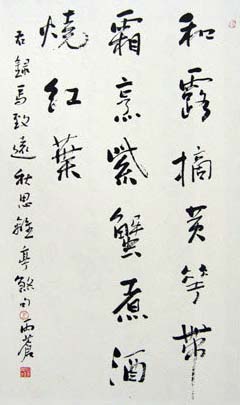 和露摘黄華帶
霜烹紫蟹煮酒
燒紅葉
右錄馬致遠秋思離亭煞句雨蒼